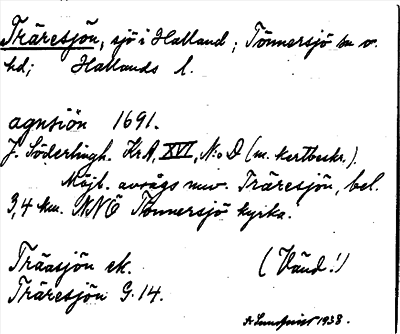 Träresjön, sjö i Halland; Tönnersjö sn o.
hd; Hallands l.
agnsiön 1691.
J. Söderlingh. KrA, XVI, N:o D (m. kartbeskr.).
Möjl. avsågs nuv. Träresjön, bel.
3,4 km. NNÖ Tönnersjö kyrka.
Träasjön ek. (Vänd!)
Träresjön G. 14.
A. Lundqvist 1938.